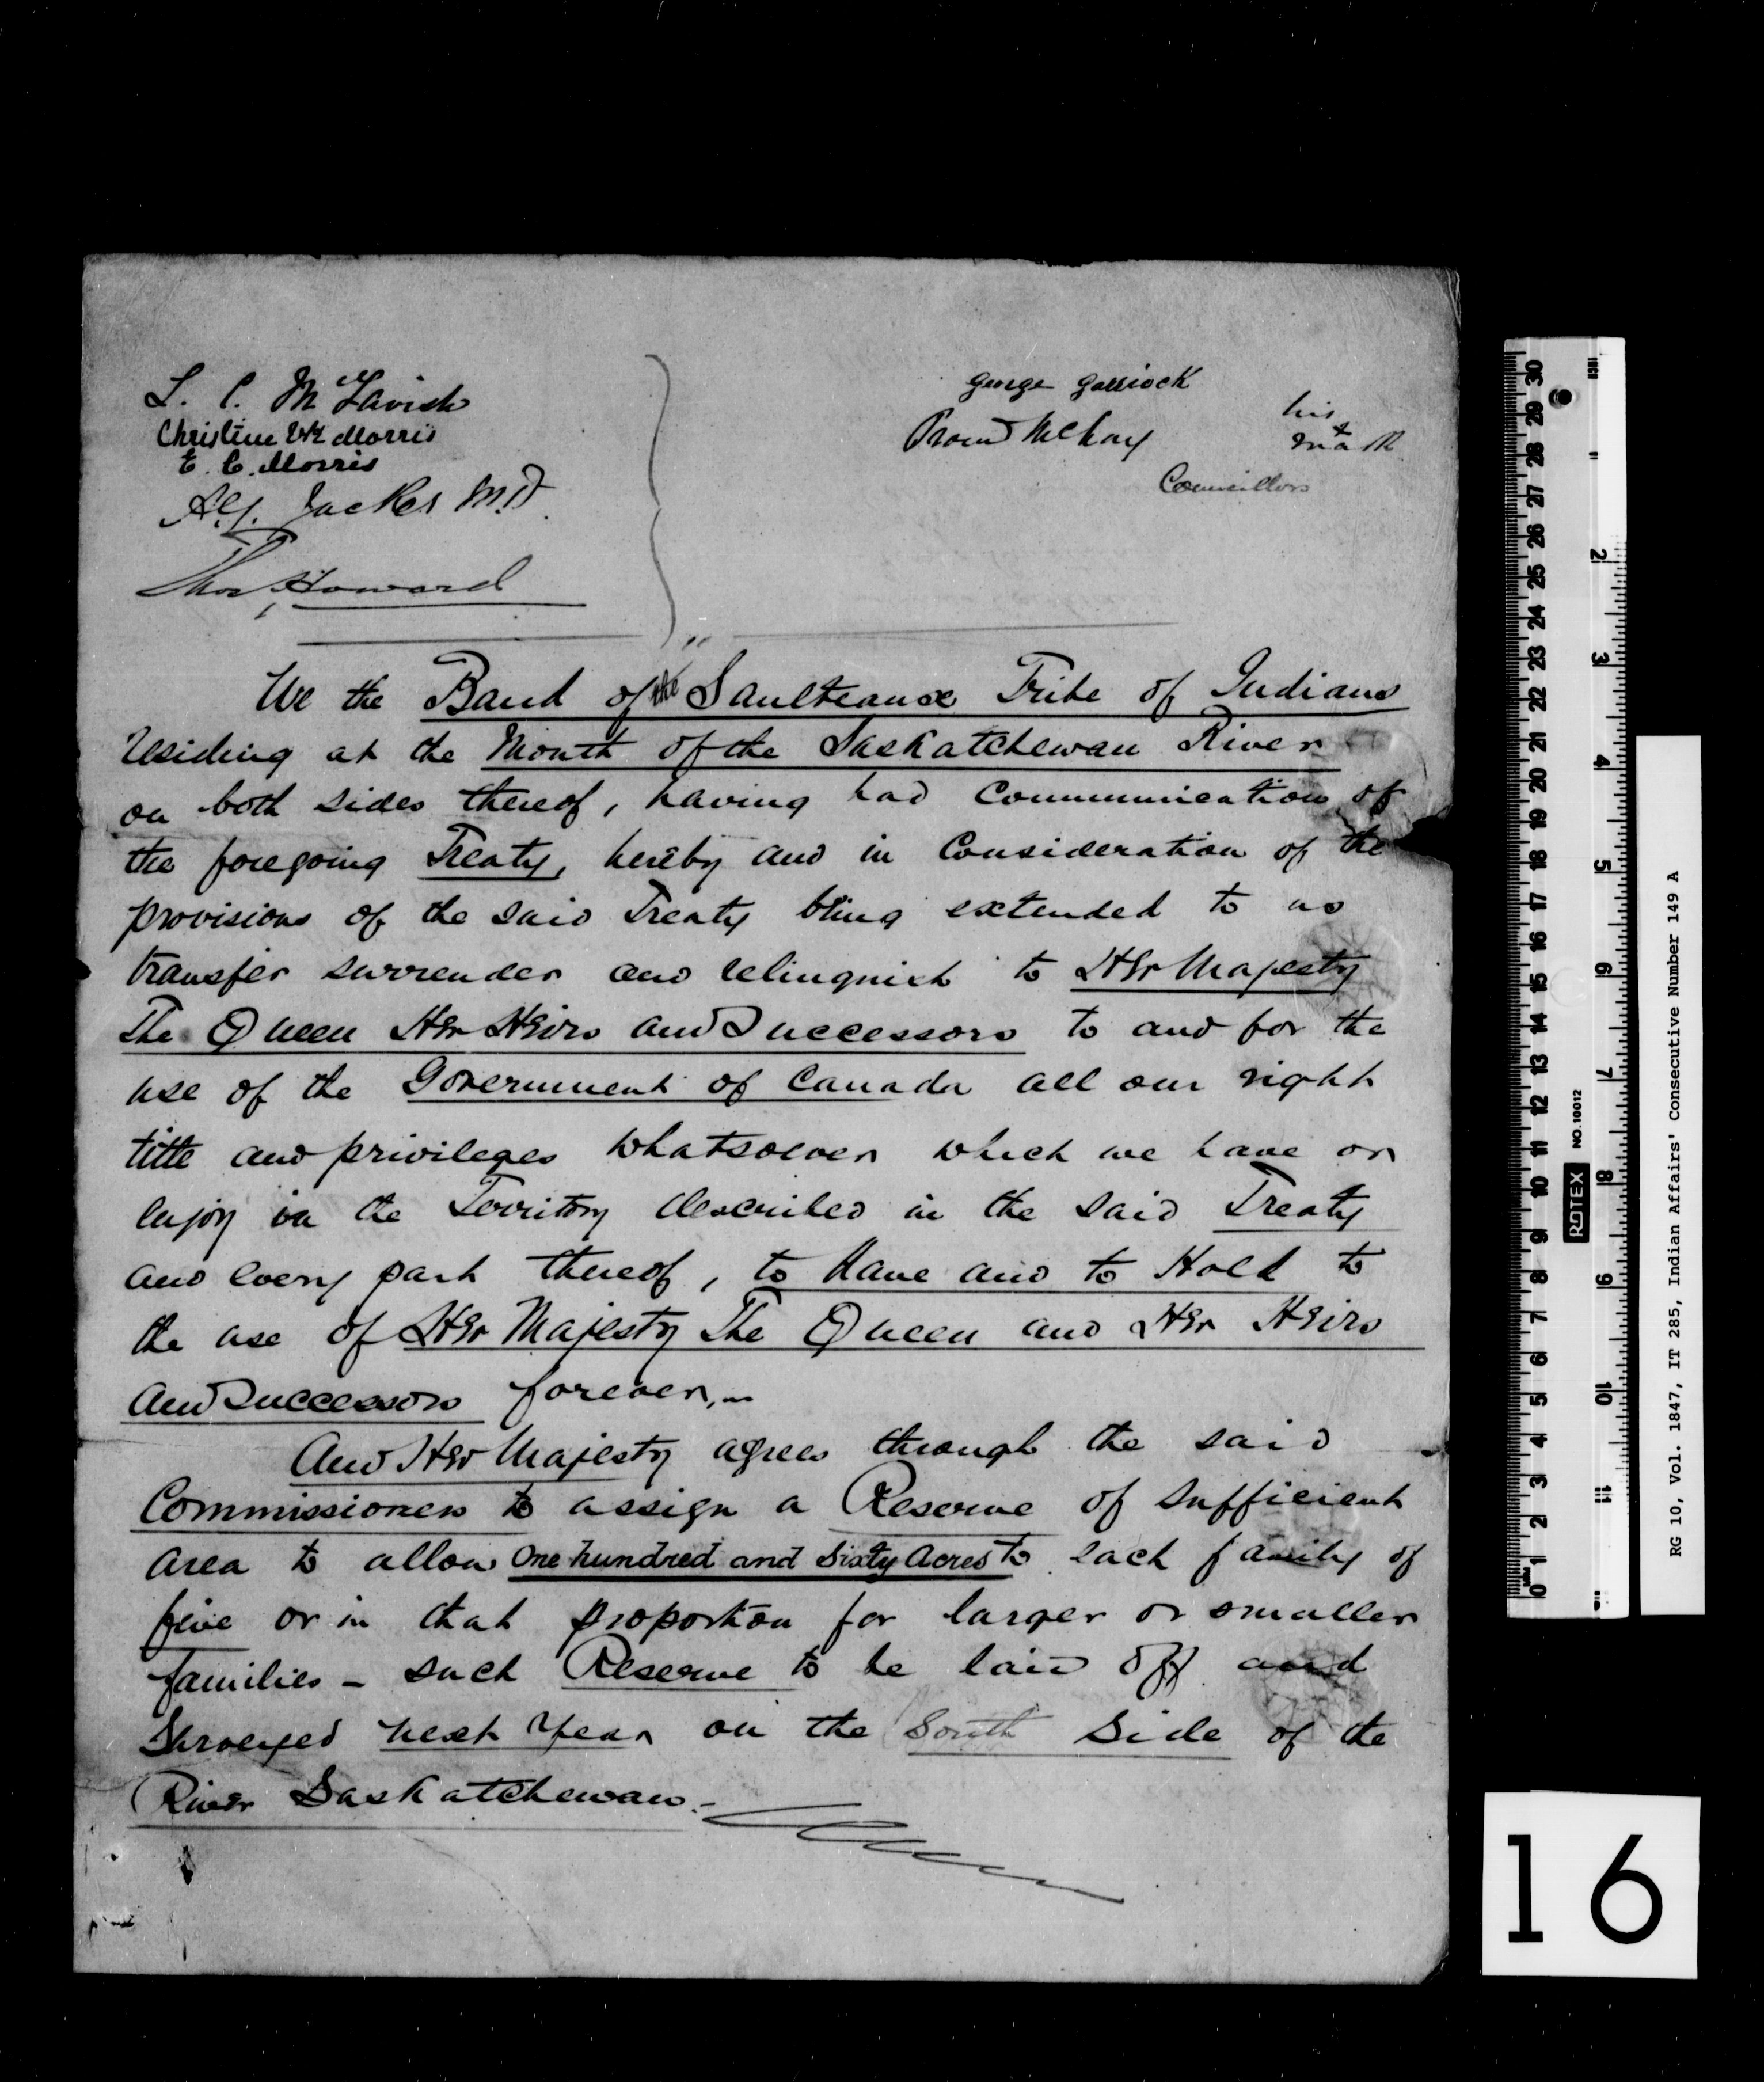 L. C. McTavish
Christine VK Morris
E. C. Morris
Alf. Jackes M.D.
Thos. Howard
George Garriock
Proud McKay
his
x
mark
Councillors
We the Band of the Saulteaux Tribe of Indians
residing at the Mouth of the Saskatchewan River
on both sides thereof, having had Communication of
the foregoing Treaty, hereby and in Consideration of the
provisions of the said Treaty being extended to us
transfer surrender and relinquish to Her Majesty
The Queen Her Heirs and Successors to and for the
use of the Government of Canada all our right
title and privileges whatsoever which we have or
enjoy in the Territory described in the said Treaty
and every part thereof, to Have and to Hold to
the use of Her Majesty The Queen and Her Heirs
and Successors forever,
And Her Majesty agrees through the said
Commissioners to assign a Reserve of sufficient
area to allow One hundred and Sixty Acres to each family of
five or in that proportion for larger or smaller
families - such Reserve to be laid off and
Surveyed next Year on the South Side of the
River Saskatchewan.-
RG 10, Vol. 1847, IT 285, Indian Affairs' Consecutive Number 149 A
ROTEX NO.10012
16